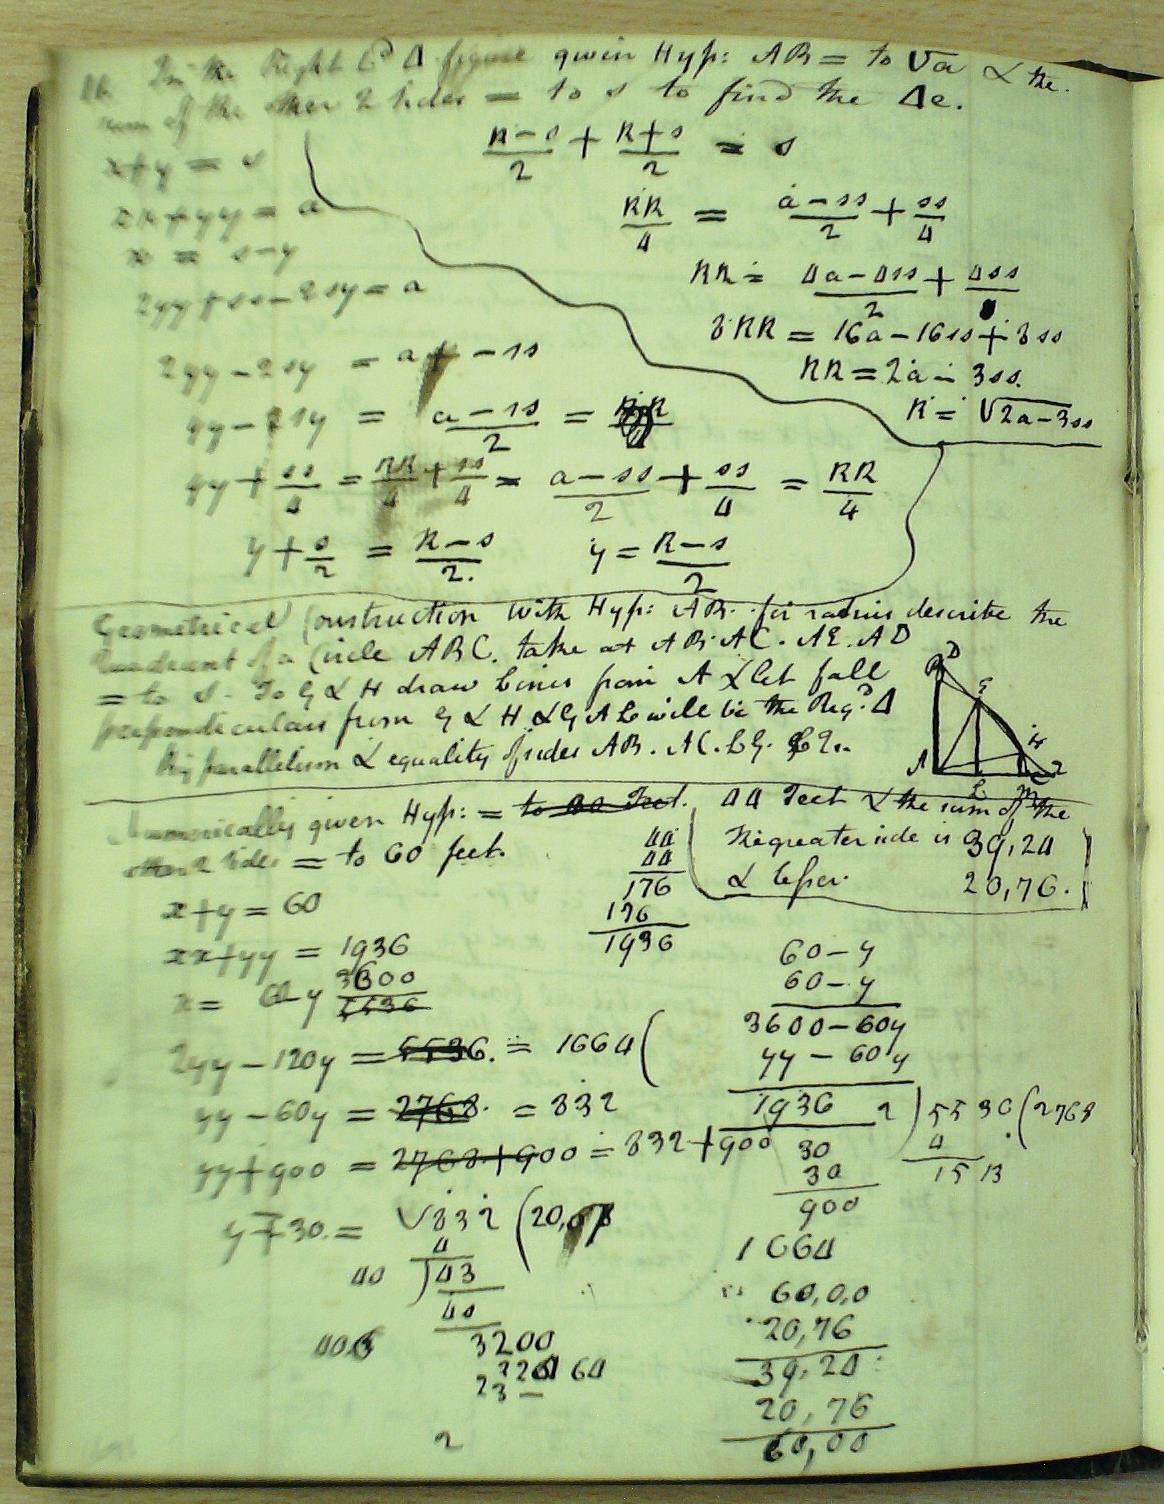 16. In the Right L.d Δ figure given Hyp: AB = to √a & the
sum of the other 2 sides = to s to find the Δe.
x+y = s
xx+yy = a
x = s-y
2yy+ss-2sy = a
2yy-2sy = a-ss
yy-sy = a-ss/2 =
yy + ss/4 = RR/4 + ss/4 = a-ss/2 + ss/4 = RR/4
y + s/2 = R-s/2. y = R-s/2
R-s/2 + R+s/2 = s
RR/4 = a-ss/2 + ss/4
RR = 4a-4ss/2 + 4ss
8RR = 16a-16ss+8ss
RR = 2a-3ss.
R = √2a-3ss
Geometrical Construction with Hyp: AB. for radius describe the
Quadrant of a Circle ABC. take at AB. AC. AE. AD
= to s. To G & H draw lines from A & let fall
perpendiculars from G & H & G A L will be the Reqd Δ
By parallelism & equality of sides AB. AC. LG.
D
B
G
H
A
L
M
C
Numerically given Hyp: = to 80 Feet. 44 Feet & the sum of the
other 2 sides = to 60 feet.
The greater side is 39,24
& lesser. 20,76.
44
44
176
176
1936
x+y = 60
xx+yy = 1936
x = 60-y
3600
5536
2yy-120y = 5536. = 1664
yy-60y = 2768. = 832
yy+900 = 2768+900 = 832+900
y-30. = √832 (20,
4
40 ) 43
40
3200
64
23-
2
60-y
60-y
3600-60y
yy-60y
1936
2 ) 5536 (2768
4
15 13
30
30
900
1664
60,0,0
20,76
39,24
20,76
60,00